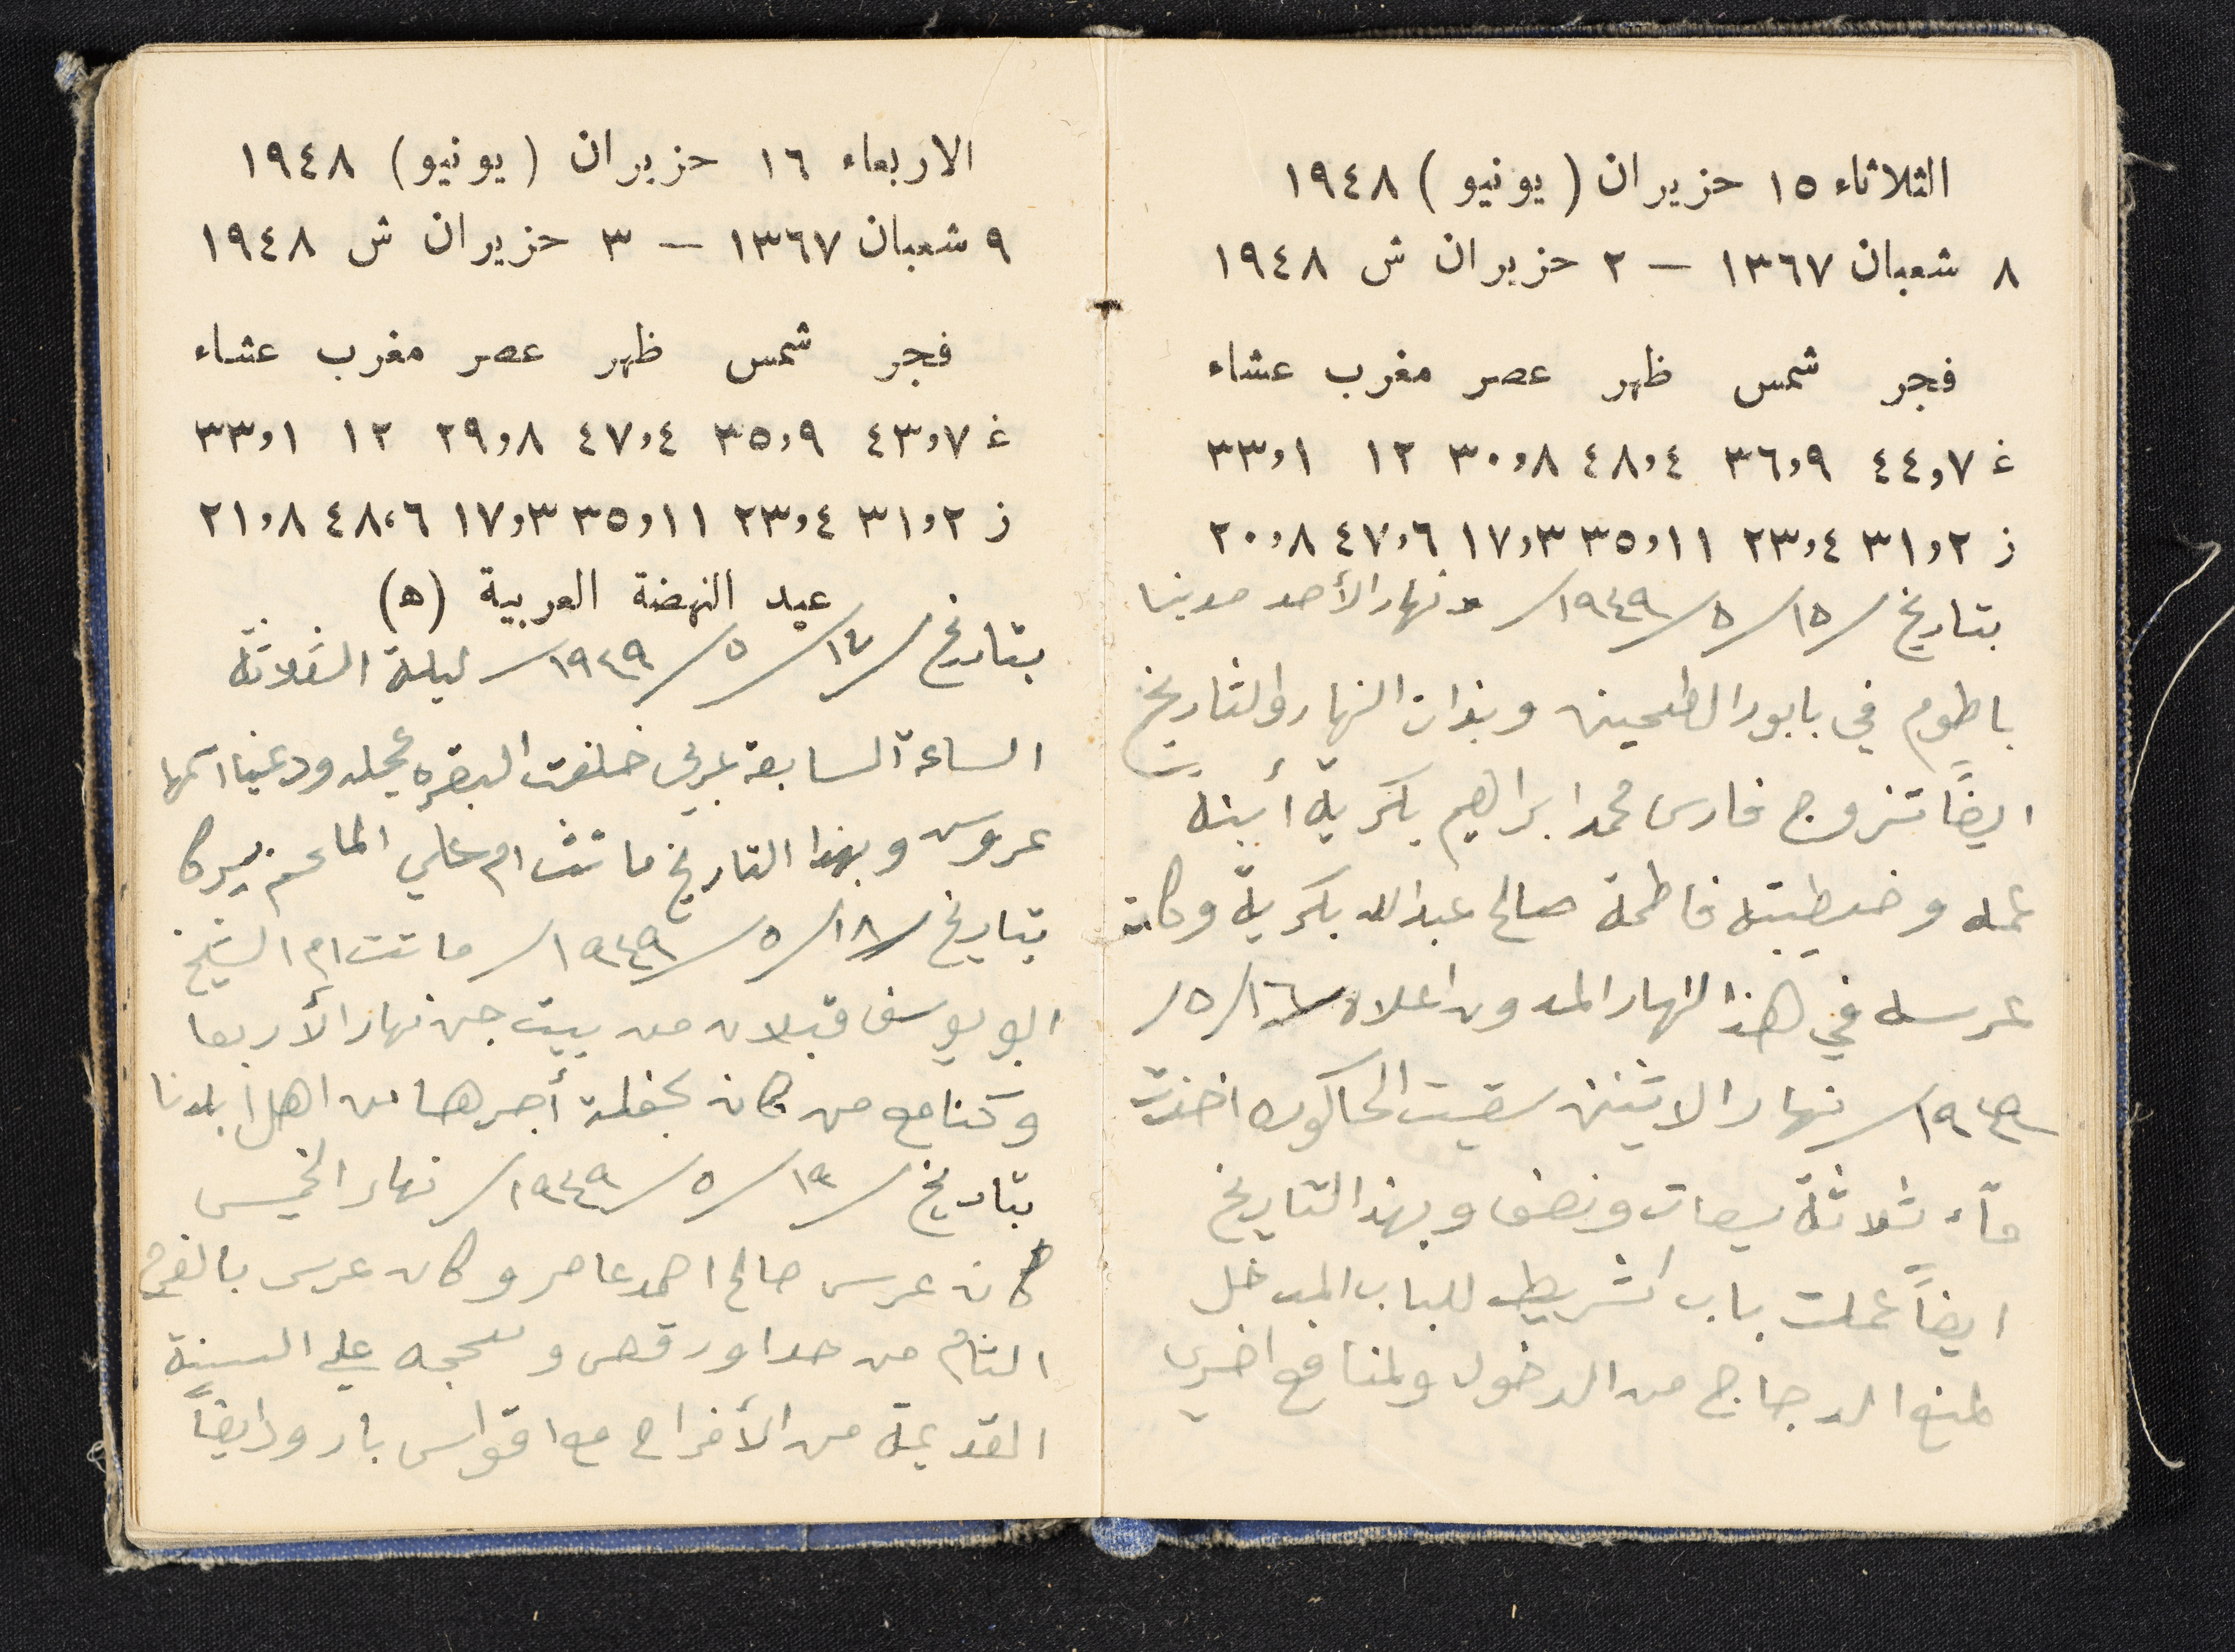 الثلاثاء ١٥ حزيران ( يونيو ) ١٩٤٨
٨ شعبان ١٣٦٧ — ٢ حزيران ش ١٩٤٨
فجر شمس ظهر عصر مغرب عشاء
غ ٤٤,٧ ٣٦,٩ ٤٨,٤ ٣٠,٨ ١٢ ٣٣,١
ز ٣١,٢ ٢٣,٤ ٣٥,١١ ١٧,٣ ٤٧,٦ ٢٠,٨
بتاريخ /١٥/ ٥/ ١٩٤٩/ نهار الأحد
في بابور الطحين وبذات النهار والتاريخ
ايضاً تزوج فارس محمد ابراهيم بكرية أبنة
عمه وخطيبته فاطمة صالح عبدالله بكرية وكان
عرسه في هذا النهار المدون اعلاه ١٦/ ٥/
١٩٤٩/ نهار الاثنين سقيت الحاكوره اخذت
مآء ثلاثة سعات ونصف وبهذا التاريخ
ايضاً عملت باب الشريط للباب المدخل
لمنع الدجاج من الدخول ولمنافع اخرى
الاربعاء ١٦ حزيران ( يونيو ) ١٩٤٨
٩ شعبان ١٣٦٧ — ٣ حزيران ش ١٩٤٨
فجر شمس ظهر عصر مغرب عشاء
غ ٤٣,٧ ٣٥,٩ ٤٧,٤ ٢٩,٨ ١٢ ٣٣,١
ز ٣١,٢ ٢٣,٤ ٣٥,١١ ١٧,٣ ٤٨,٦ ٢١,٨
عيد النهضة العربية (ه)
بتاريخ /١٧/ ٥/ ١٩٤٩/ ليلة الثلاثة
الساعة السابعة عربي خلفت البقره عجله ودعينا اسمها
عروس وبهذا التاريخ ماتت ام علي
بتاريخ /١٨/ ٥/ ١٩٤٩/ ماتت ام الشيخ
ابو يوسف قبلان من بيت جن نهار الأربعا
وكنا مع من كان بحفلة أجرها من اهل ابلدنا
بتاريخ /١٩/ ٥/ ١٩٤٩/ نهار الخميس
كان عرس صالح احمد عامر وكان عرس بالفرح
التام من حدا ورقص وسحجه على السنة
القديمة من الأفراح مع اقواس بارود ايضاً